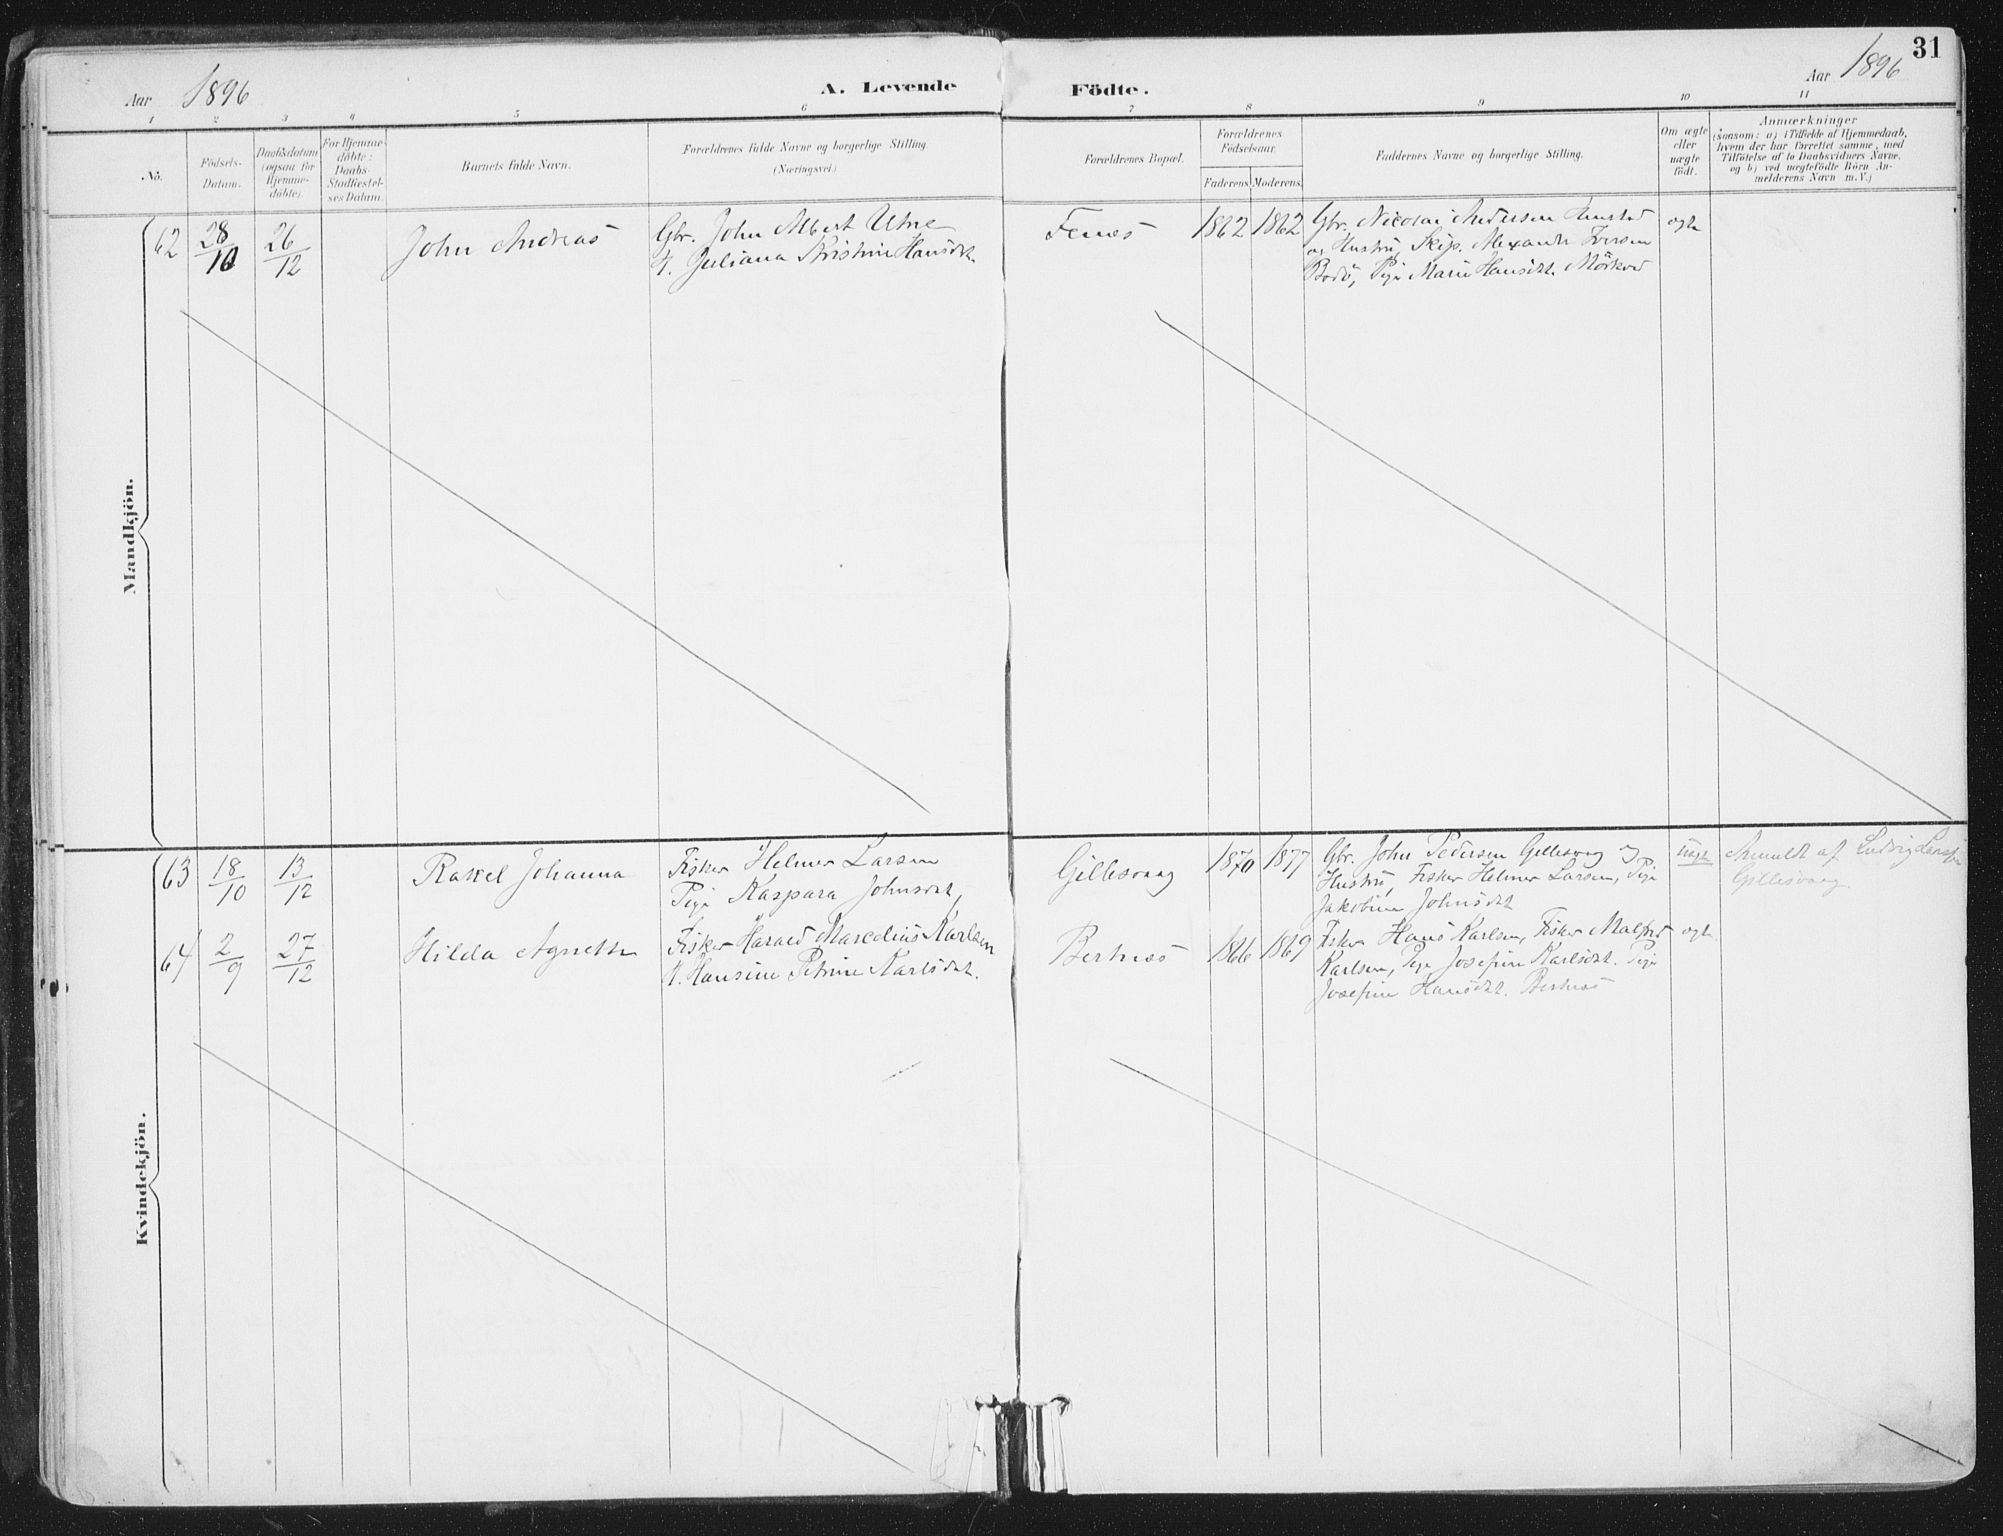 31
Aar 1896
A. Levende
Födte.
Aar 1896
1 2 3 4 5 6 7 8 9 10 11
No.
Födsels-
Datum.
Daabsdatum
(ogsaa for
Hjemme-
döbte).
For Hjemme-
döbte:
Daabs-
Stadfæstel-
ses Datum.
Barnets fulde Navn.
Forældrenes fulde Navne og borgerlige Stilling.
(Næringsvei.)
Forældrenes Bopæl.
Forældrenes
Födselsaar.
Faderens. Moderens.
Faddernes Navne og borgerlige Stilling.
Om ægte
eller
uægte
födt.
Anmærkninger
(saasom: a) i Tilfælde af Hjemmedaab,
hvem der har forrettet samme, med
Tilföielse af to Daabsvidners Navne,
og b) ved uægtefödte Börn An-
melderens Navn m.V.)
Mandkjön.
62 28/10 26/12 John Andreas
Gbr. John Albert Utne
H. Juliana Kristine Hansdt.
Fenes 1862 1862
Gbr. Nicolai Andersen
og Hustru, Skip. Alexander Iversen
Bodö, Pige Marie Hansdt. Mörkved
ægte
Kvindekjön.
63 18/10 13/12 Rakel Johanna
Fisker Helmer Larsen
Pige Kaspara Johnsdt,
Gillesvaag 1870 1877
Gbr. John Pedersen Gillesvaag og
Hustru, Fisker Helmer Larsen, Pige
Jakobine Johnsdt
uægte
Anmeldt af Ludvig Larsen
Gillesvaag.
64 2/9 27/12 Hilda Agnette
Fisker Harald Marcelius Karlsen
H. Hansine Petrine Karlsdt.
Bertnes 1866 1869
Fisker Hans Karlsen, Fisker Malfred
Karlsen, Pige Josefine Karlsdt. Pige
Josefine Hansdt. Bertnes
ægte